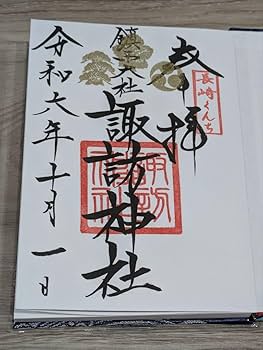 長崎くんち
奉拝
鎮西大社
諏訪神社
令和六年十月一日